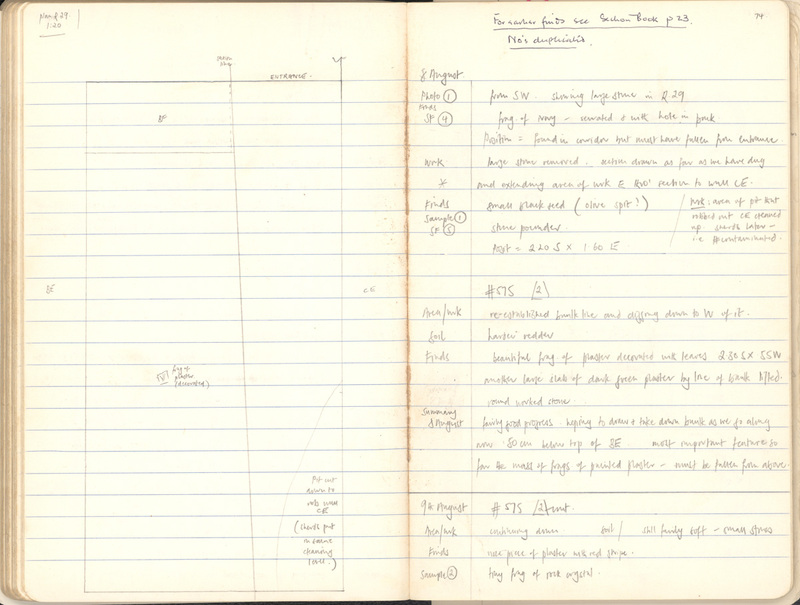 1:20
ENTRANCE
BF
BE
CE
frag of
plaster
(decorated)
Pit cut
down to
rob wall
CE
(sherds put
in
cleaning
level.)
For earlier finds see Section Book p 23.
No's duplicated.
74
8 August
Photo 1 from SW. showing large stone in Q.29
Finds
SF 4 frag. of ivory - serrated & with hole in
Position = found in corridor but must have fallen from entrance
Work large stone removed - section drawn as far as we have dug
* and extending area of work E to section to wall CE.
Finds small black seed (olive spit?)
Sample 1
SF 5 stone pounder.
Posit = 2.20 S x 1.60 E
Note: area of pit that
robbed out CE cleaned
up. sherds later -
i.e. contaminated.
#575 2
Area/wk re-established baulk line and digging down to W of it.
Soil harder redder
Finds beautiful frag. of plaster decorated with leaves 2.80 S x .85 W
another large slab of dark green plaster by line of baulk lifted.
round worked stone
Summary
8 August fairly good progress. hoping to draw & take down baulk as we go along
now .80 cm below top of BE most important feature so
far the mass of frags of painted plaster - must be fallen from above.
9th August #575 2 cont.
Area/wk continuing down soil / still fairly soft - small stones
Finds nice piece of plaster with red stripe.
Sample 2 tiny frag of rock crystal.